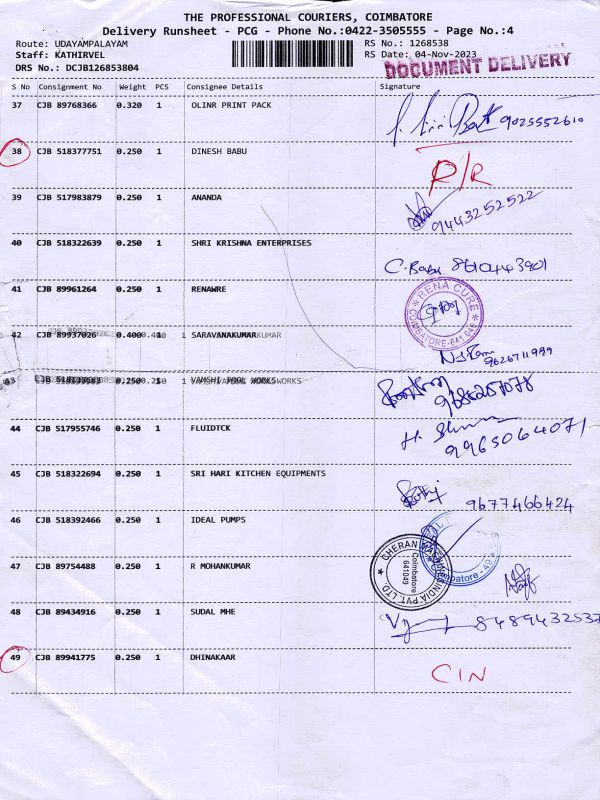 THE PROFESSIONAL COURIERS, COIMBATORE
Delivery Runsheet - PCG - Phone No.:0422-3505555 - Page No.:4
Route: UDAYAMPALAYAM
RS No.: 1268538
Staff: KATHIRVEL
RS Date: 04-Nov-2023
DRS No.: DCJB126853804
DOCUMENT DELIVERY
S No Consignment No Weight PCS Consignee Details Signature
37 CJB 89768366 0.320 1 OLINR PRINT PACK 9025552610
38 CJB 518377751 0.250 1 DINESH BABU D/R
39 CJB 517983879 0.250 1 ANANDA 9443252522
40 CJB 518322639 0.250 1 SHRI KRISHNA ENTERPRISES
C. Babu
41 CJB 89961264 0.250 1 RENAWRE
RENA CURE
COIMBATORE-641 049
42 CJB 89937026 0.400 1 SARAVANAKUMAR
43 0.250 1 VAMSHI TOOL WORKS
44 CJB 517955746 0.250 1 FLUIDTCK
9965064071
45 CJB 518322694 0.250 1 SRI HARI KITCHEN EQUIPMENTS
9677466424
46 CJB 518392466 0.250 1 IDEAL PUMPS
CHERAN INDIA PVT. LTD.
Coimbatore
641049
47 CJB 89754488 0.250 1 R MOHANKUMAR
48 CJB 89434916 0.250 1 SUDAL MHE 8489432537
49 CJB 89941775 0.250 1 DHINAKAAR CIN